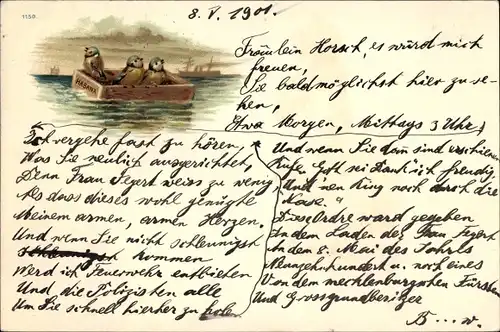 1150.
8. V. 1901.
HABANA
Fräulein Horsch, es würd mich
freuen,
Sie baldmöglichst hier zu se-
hen,
Etwa Morgen, Mittags 3 Uhr!
Ich vergehe fast zu hören,
Was Sie neulich ausgerichtet,
Denn Frau Segert weiss zu wenig,
Als dass dieses wohl genügte
Meinem armen, armen Herzen.
Und wenn Sie nicht schleunigst
kommen
Werd ich Feuerwehr entbieten
Und die Polizisten alle
Um Sie schnell hierher zu holen.
Und wenn Sie dann sind erschienen
Rufe „Gott sei Dank" ich freudig
"Und nen Ring noch durch die
Nase."
Diese Ordre ward gegeben
In dem Laden des Frau Segert
An dem 8. Mai des Jahrls
Neunzehnhundert u. noch eines
Von dem mecklenburgschen Fürsten
Und Grossgrundbesitzer
B...w.